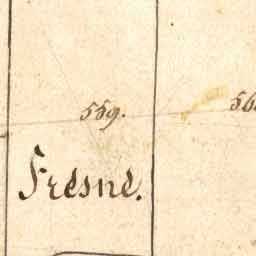 559.
Fresne.